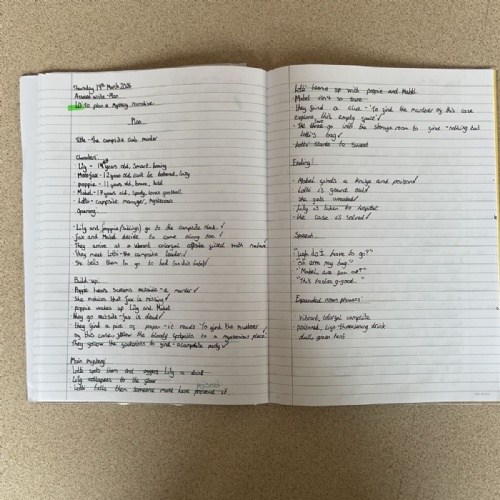 Thursday 19th March 2026
Assess write - Plan
LO: To plan a mystery narrative.
Plan
Title - The campsite club murder
Characters:
- Lily - 14 years old, smart, loving
12 years old, can't be bothered, lazy
- poppie - 11 years old, brave, bold
- Mabel - 13 years old, sporty, loves football
- Lotti - campsite manager, mysterious
Opening:
- Lily and poppie (siblings) go to the campsite club. ✓
- and Mabel decide to come along too. ✓
- They arrive at a vibrant colorful campsite filled with nature ✓
- They meet Lotti - the campsite leader ✓
- She tells them to go to bed ✓
Build-up:
- Poppie hears screams outside - a murder ✓
- She notices that is missing ✓
- poppie wakes up Lily and Mabel
- they go outside - is dead ✓
- they find a piece of paper - it reads 'To find the murderer
of this case, follow the bloody footprints to a mysterious place' ✓
- They follow the footprints to find - a campsite party ✓
Main mystery:
Lotti spots them and offers Lily a drink
Lily collapses to the floor
Lotti tells them someone must have poisoned it
- Lotti teams up with poppie and Mabel
- Mabel isn't so sure
- They find a clue - 'To find the murderer of this case
explore, this empty space' ✓
- The go into the storage room to find - nothing but
Lotti's bag ✓
- Lotti starts to sweat
Ending:
- Mabel finds a knife and poison ✓
- Lotti is found out ✓
- She gets arrested ✓
- Lily is taken to hospital
- the case is solved ✓
Speech:
"Ugh do I have to go?"
"Mabel, are you ok?"
"This tastes good".
Expanded noun phrases:
Vibrant, colorful campsite
Poisoned, life-threatening drink
dull, green tent